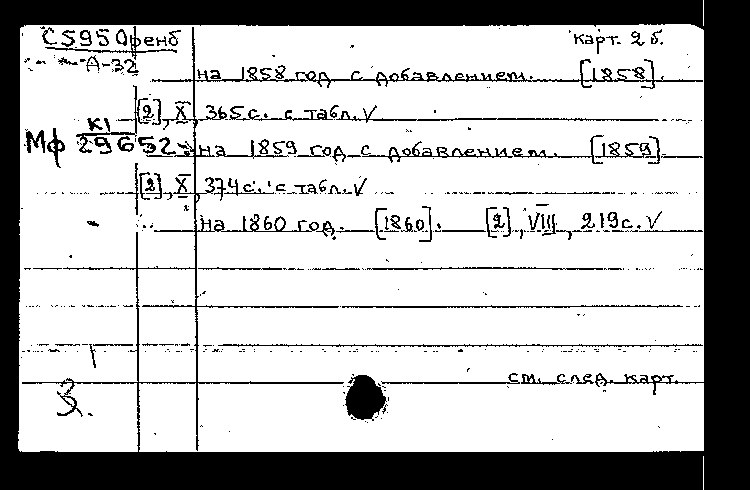 С595 Оренб карт. 2 б.
А-32
на 1858 год с добавлением. [1858].
[2], X, 365 с. с табл. V
К1
Мф 29652 на 1859 год с добавлением. [1859]
[2], X, 374 с. с табл. V
на 1860 год. [1860]. [2], VIII, 219 с. V
см. след. карт.